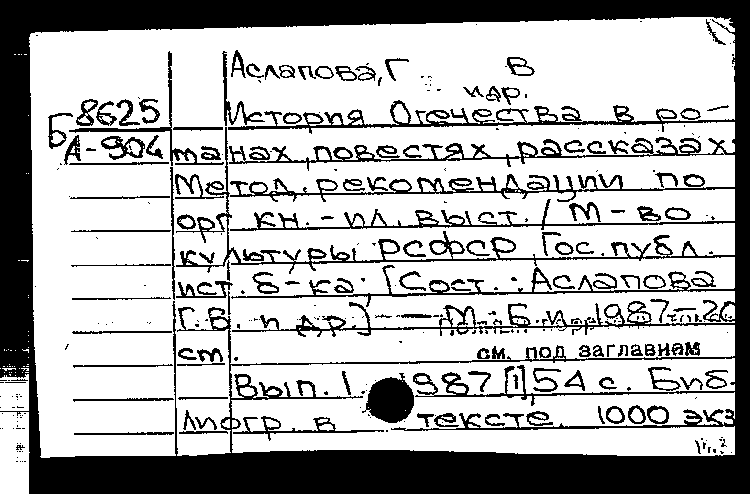 Аслапова, Г. В
и др.
Б 8625
А-904
История Отечества в ро-
манах, повестях, рассказах:
Метод. рекомендации по
орг кн.-ил. выст. / М-во
культуры РСФСР Гос. публ.
ист. б-ка; [Сост.: Аслапова
Г.В. и др.] — М.: Б.и., 1987 – 20
см.
см. под заглавием
Вып. 1. 1987 [1] 54 с. Биб-
лиогр. в тексте. 1000 экз